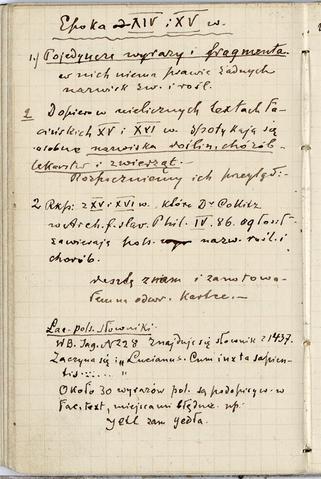 Epoka od XIV i XV w.
1.) Pojedyncze wyrazy i fragmenta
w nich niema prawie żadnych
nazwisk zw. i rośl.
2 Dopiero w nielicznych textach ła-
cińskich XV i XVI w. spotykają się
osobne nazwiska roślin, chorób
lekarstw i zwierząt.
Rozpoczniemy ich przegląd:-
2 Rkp: z XV i XVI w. które Dr
w Arch. f. slav. Phil. IV. 86. ogłosił
zawierają pols. nazw. rośl. i
chorób.
resztę znam i zanotowa-
łem odwr. kartce.-
Łac. pols. słowniki.
W B. Jag. N 228 znajduje się słownik z 1437.
Zaczyna się: „Lucianus. Cum iuxta sapien-
tis
Około 30 wyrazów pol. są podopisyw. w
łac. text, miejscami błędnie np.
yell zam jedla.